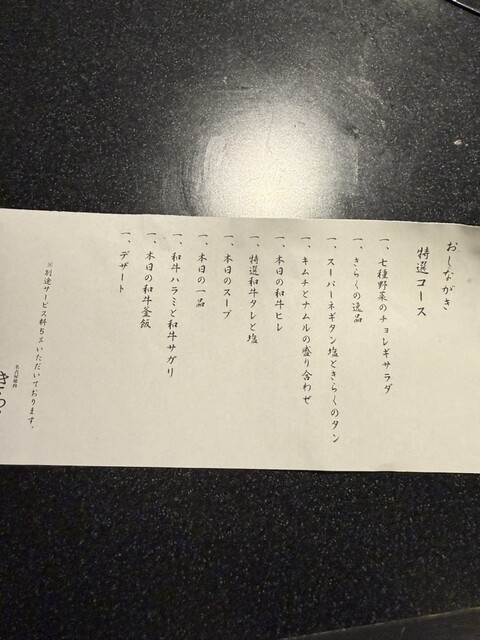 おしながき
特選コース
一、七種野菜のチョレギサラダ
一、きらくの逸品
一、スーパーネギタン塩ときらくのタン
一、キムチとナムルの盛り合わせ
一、本日の和牛ヒレ
一、特選和牛タレと塩
一、本日のスープ
一、本日の一品
一、和牛ハラミと和牛サガリ
一、本日の和牛釜飯
一、デザート
※別途サービス料5%いただいております。